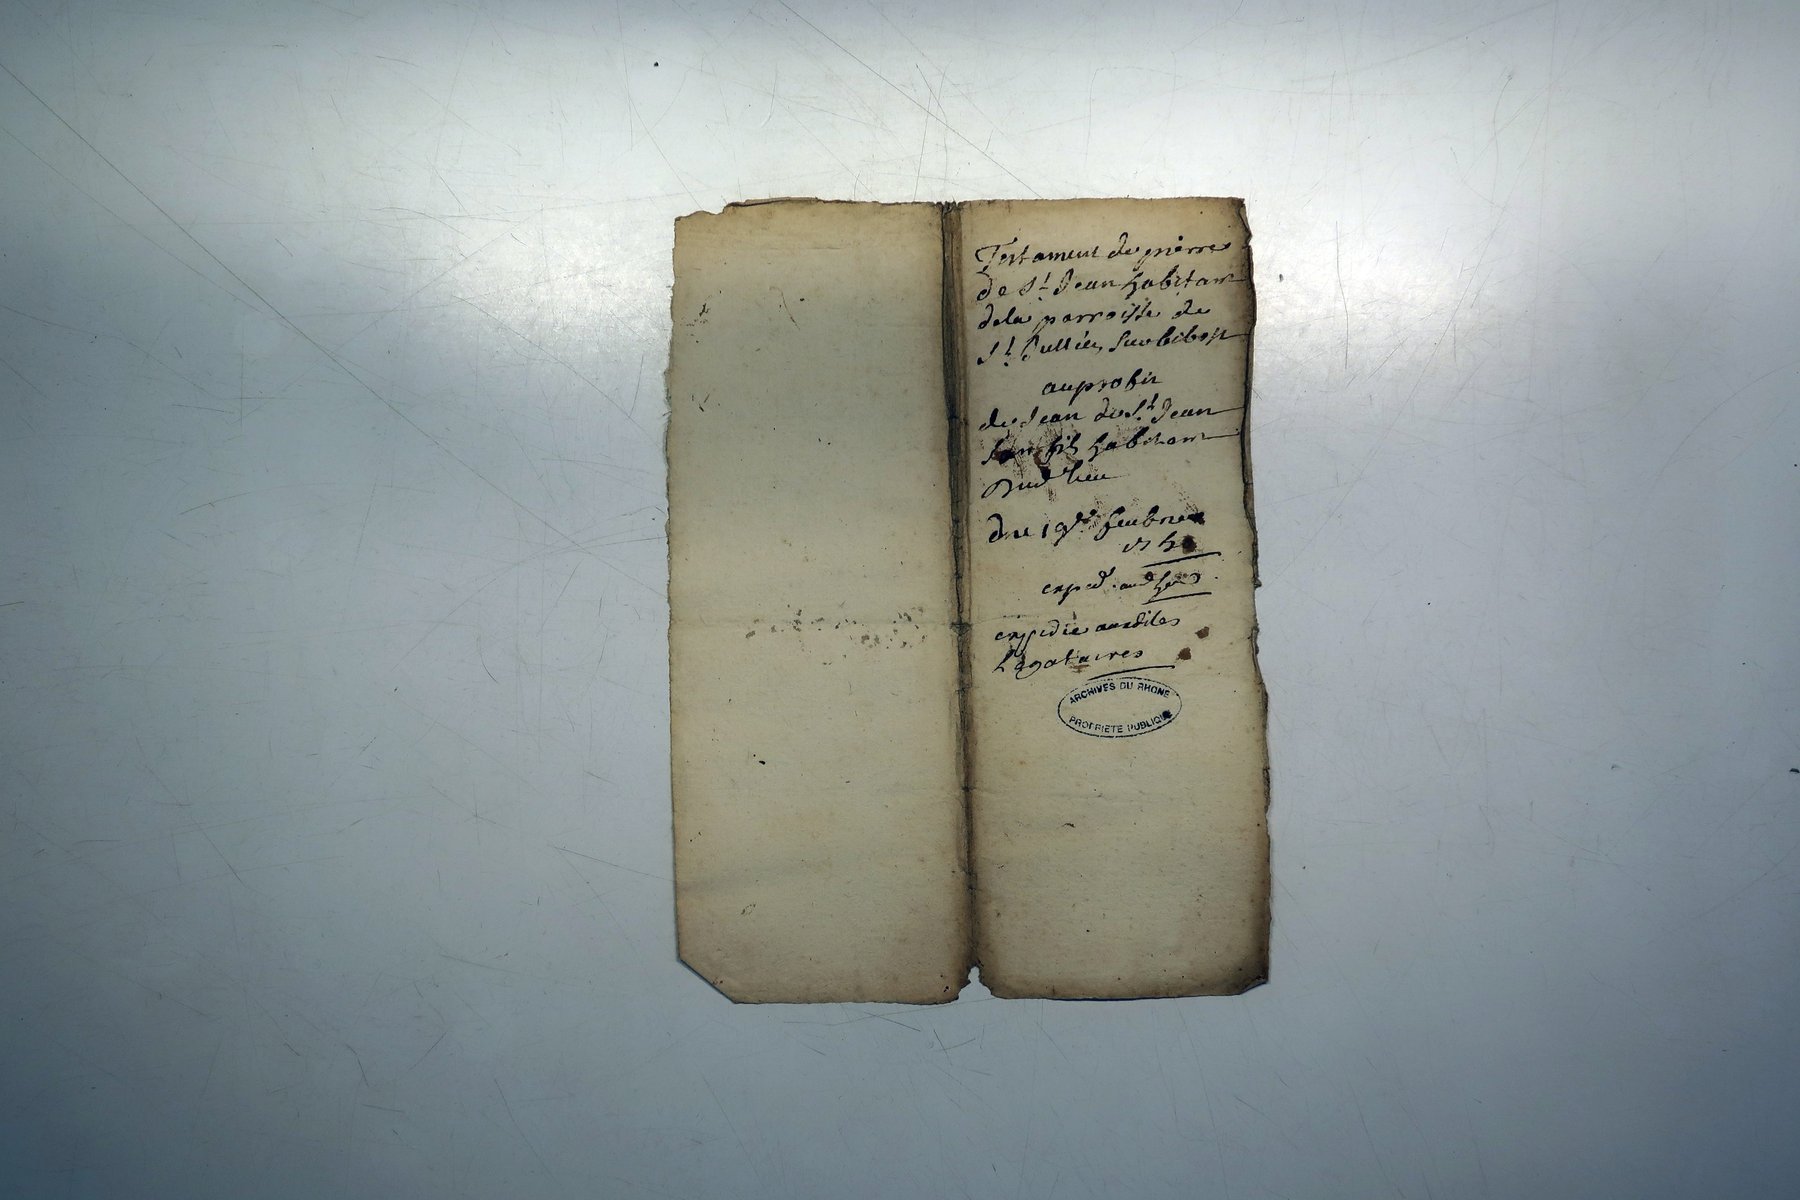 Testament de pierre
de St Jean habitant
dela parroisse de
St Jullien sur bibost
au profit
de Jean de St Jean
son fils habitant
aud lieu
du 19e feubrier
exped. aud
expedié ausdites
Legataires
ARCHIVES DU RHONE
PROPRIETE PUBLIQUE